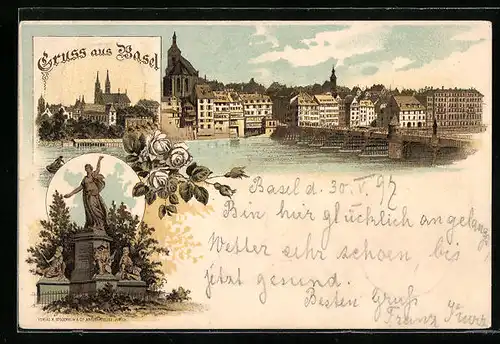 Gruss aus Basel
Basel d. 30. V. 97
Bin hier glücklich angelangt
Wetter sehr schoen, bis
jetzt gesund.
Besten Gruß
Franz